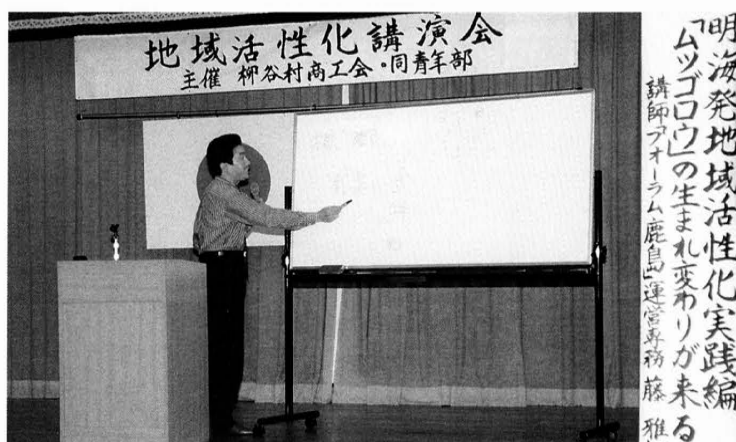 地域活性化講演会
主催 柳谷村商工会・同青年部
明海発地域活性化実践編
「ムツゴロウ」の生まれ変わりが来る
講師「フォーラム鹿島」運営専務 藤 雅